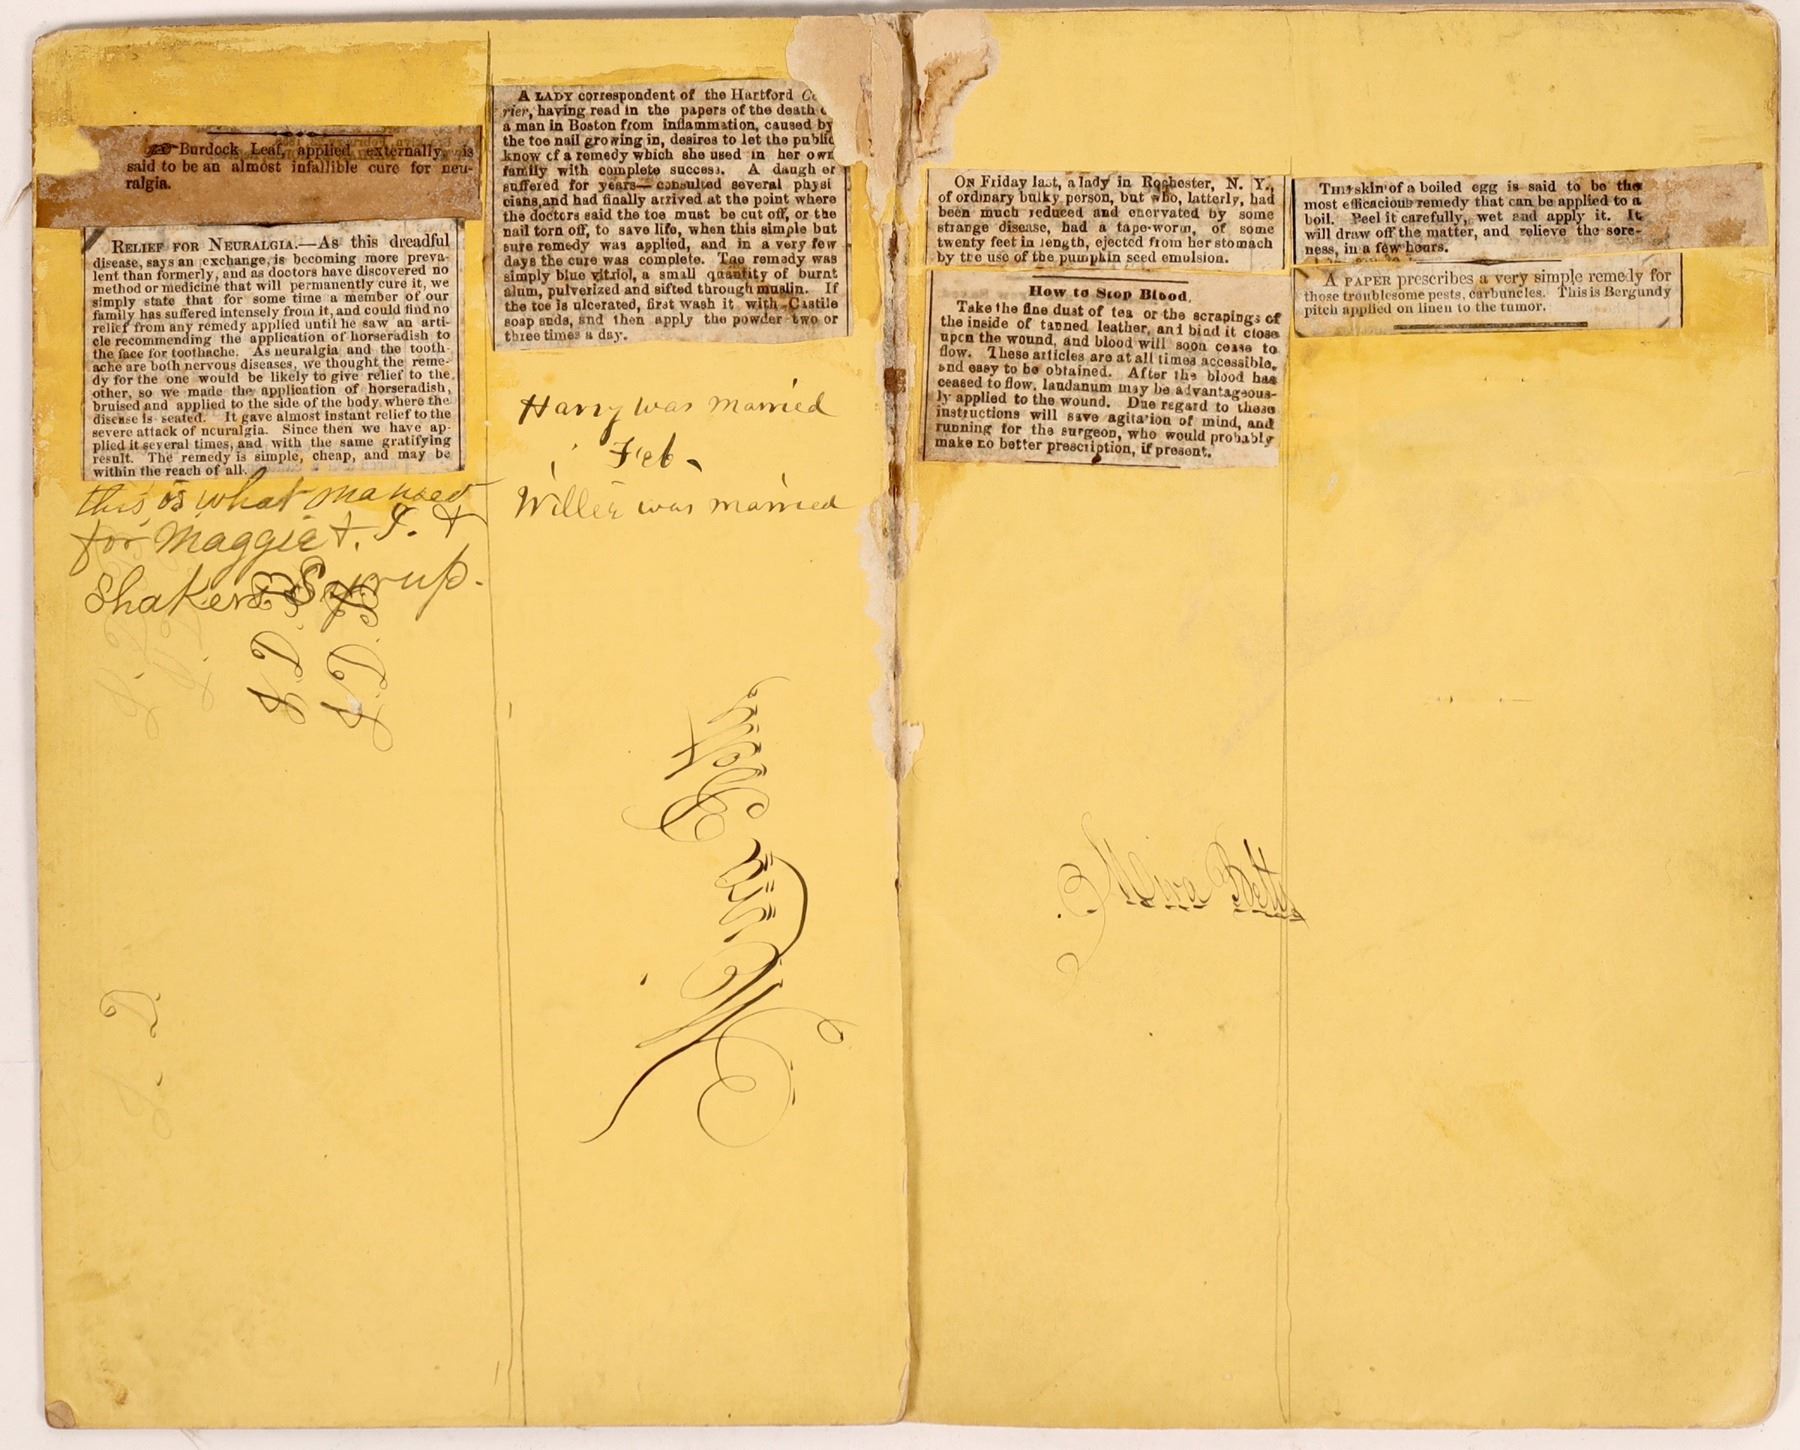 Burdock Leaf, applied externally, is
said to be an almost infallible cure for neu-
ralgia.
RELIEF FOR NEURALGIA.—As this dreadful
disease, says an exchange, is becoming more preva-
lent than formerly, and as doctors have discovered no
method or medicine that will permanently cure it, we
simply state that for some time a member of our
family has suffered intensely from it, and could find no
relief from any remedy applied until he saw an arti-
cle recommending the application of horseradish to
the face for toothache. As neuralgia and the tooth-
ache are both nervous diseases, we thought the reme-
dy for the one would be likely to give relief to the
other, so we made the application of horseradish,
bruised and applied to the side of the body where the
disease is seated. It gave almost instant relief to the
severe attack of neuralgia. Since then we have ap-
plied it several times, and with the same gratifying
result. The remedy is simple, cheap, and may be
within the reach of all.
this is what ma used
for Maggie +. I. +
Shakers Syrup.
J. D. B
J. D. B
J. D.
A LADY correspondent of the Hartford
rier, having read in the papers of the death
a man in Boston from inflammation, caused by
the toe nail growing in, desires to let the public
know of a remedy which she used in her own
family with complete success. A daugh er
suffered for years—consulted several physi
cians, and had finally arrived at the point where
the doctors said the toe must be cut off, or the
nail torn off, to save life, when this simple but
sure remedy was applied, and in a very few
days the cure was complete. The remedy was
simply blue vitriol, a small quantity of burnt
alum, pulverized and sifted through muslin. If
the toe is ulcerated, first wash it with Castile
soap suds, and then apply the powder two or
three times a day.
Harry was married
Feb.
Willie was married
On Friday last, a lady in Rochester, N. Y.,
of ordinary bulky person, but who, latterly, had
been much reduced and enervated by some
strange disease, had a tape-worm, of some
twenty feet in length, ejected from her stomach
by the use of the pumpkin seed emulsion.
How to Stop Blood.
Take the fine dust of tea or the scrapings of
the inside of tanned leather, and bind it close
upon the wound, and blood will soon cease to
flow. These articles are at all times accessible,
and easy to be obtained. After the blood has
ceased to flow, laudanum may be advantageous-
ly applied to the wound. Due regard to these
instructions will save agitation of mind, and
running for the surgeon, who would probably
make no better prescription, if present.
Mira Betts
The skin of a boiled egg is said to be the
most efficacious remedy that can be applied to a
boil. Peel it carefully, wet and apply it. It
will draw off the matter, and relieve the sore-
ness, in a few hours.
A PAPER prescribes a very simple remedy for
those troublesome pests, carbuncles. This is Bergundy
pitch applied on linen to the tumor.